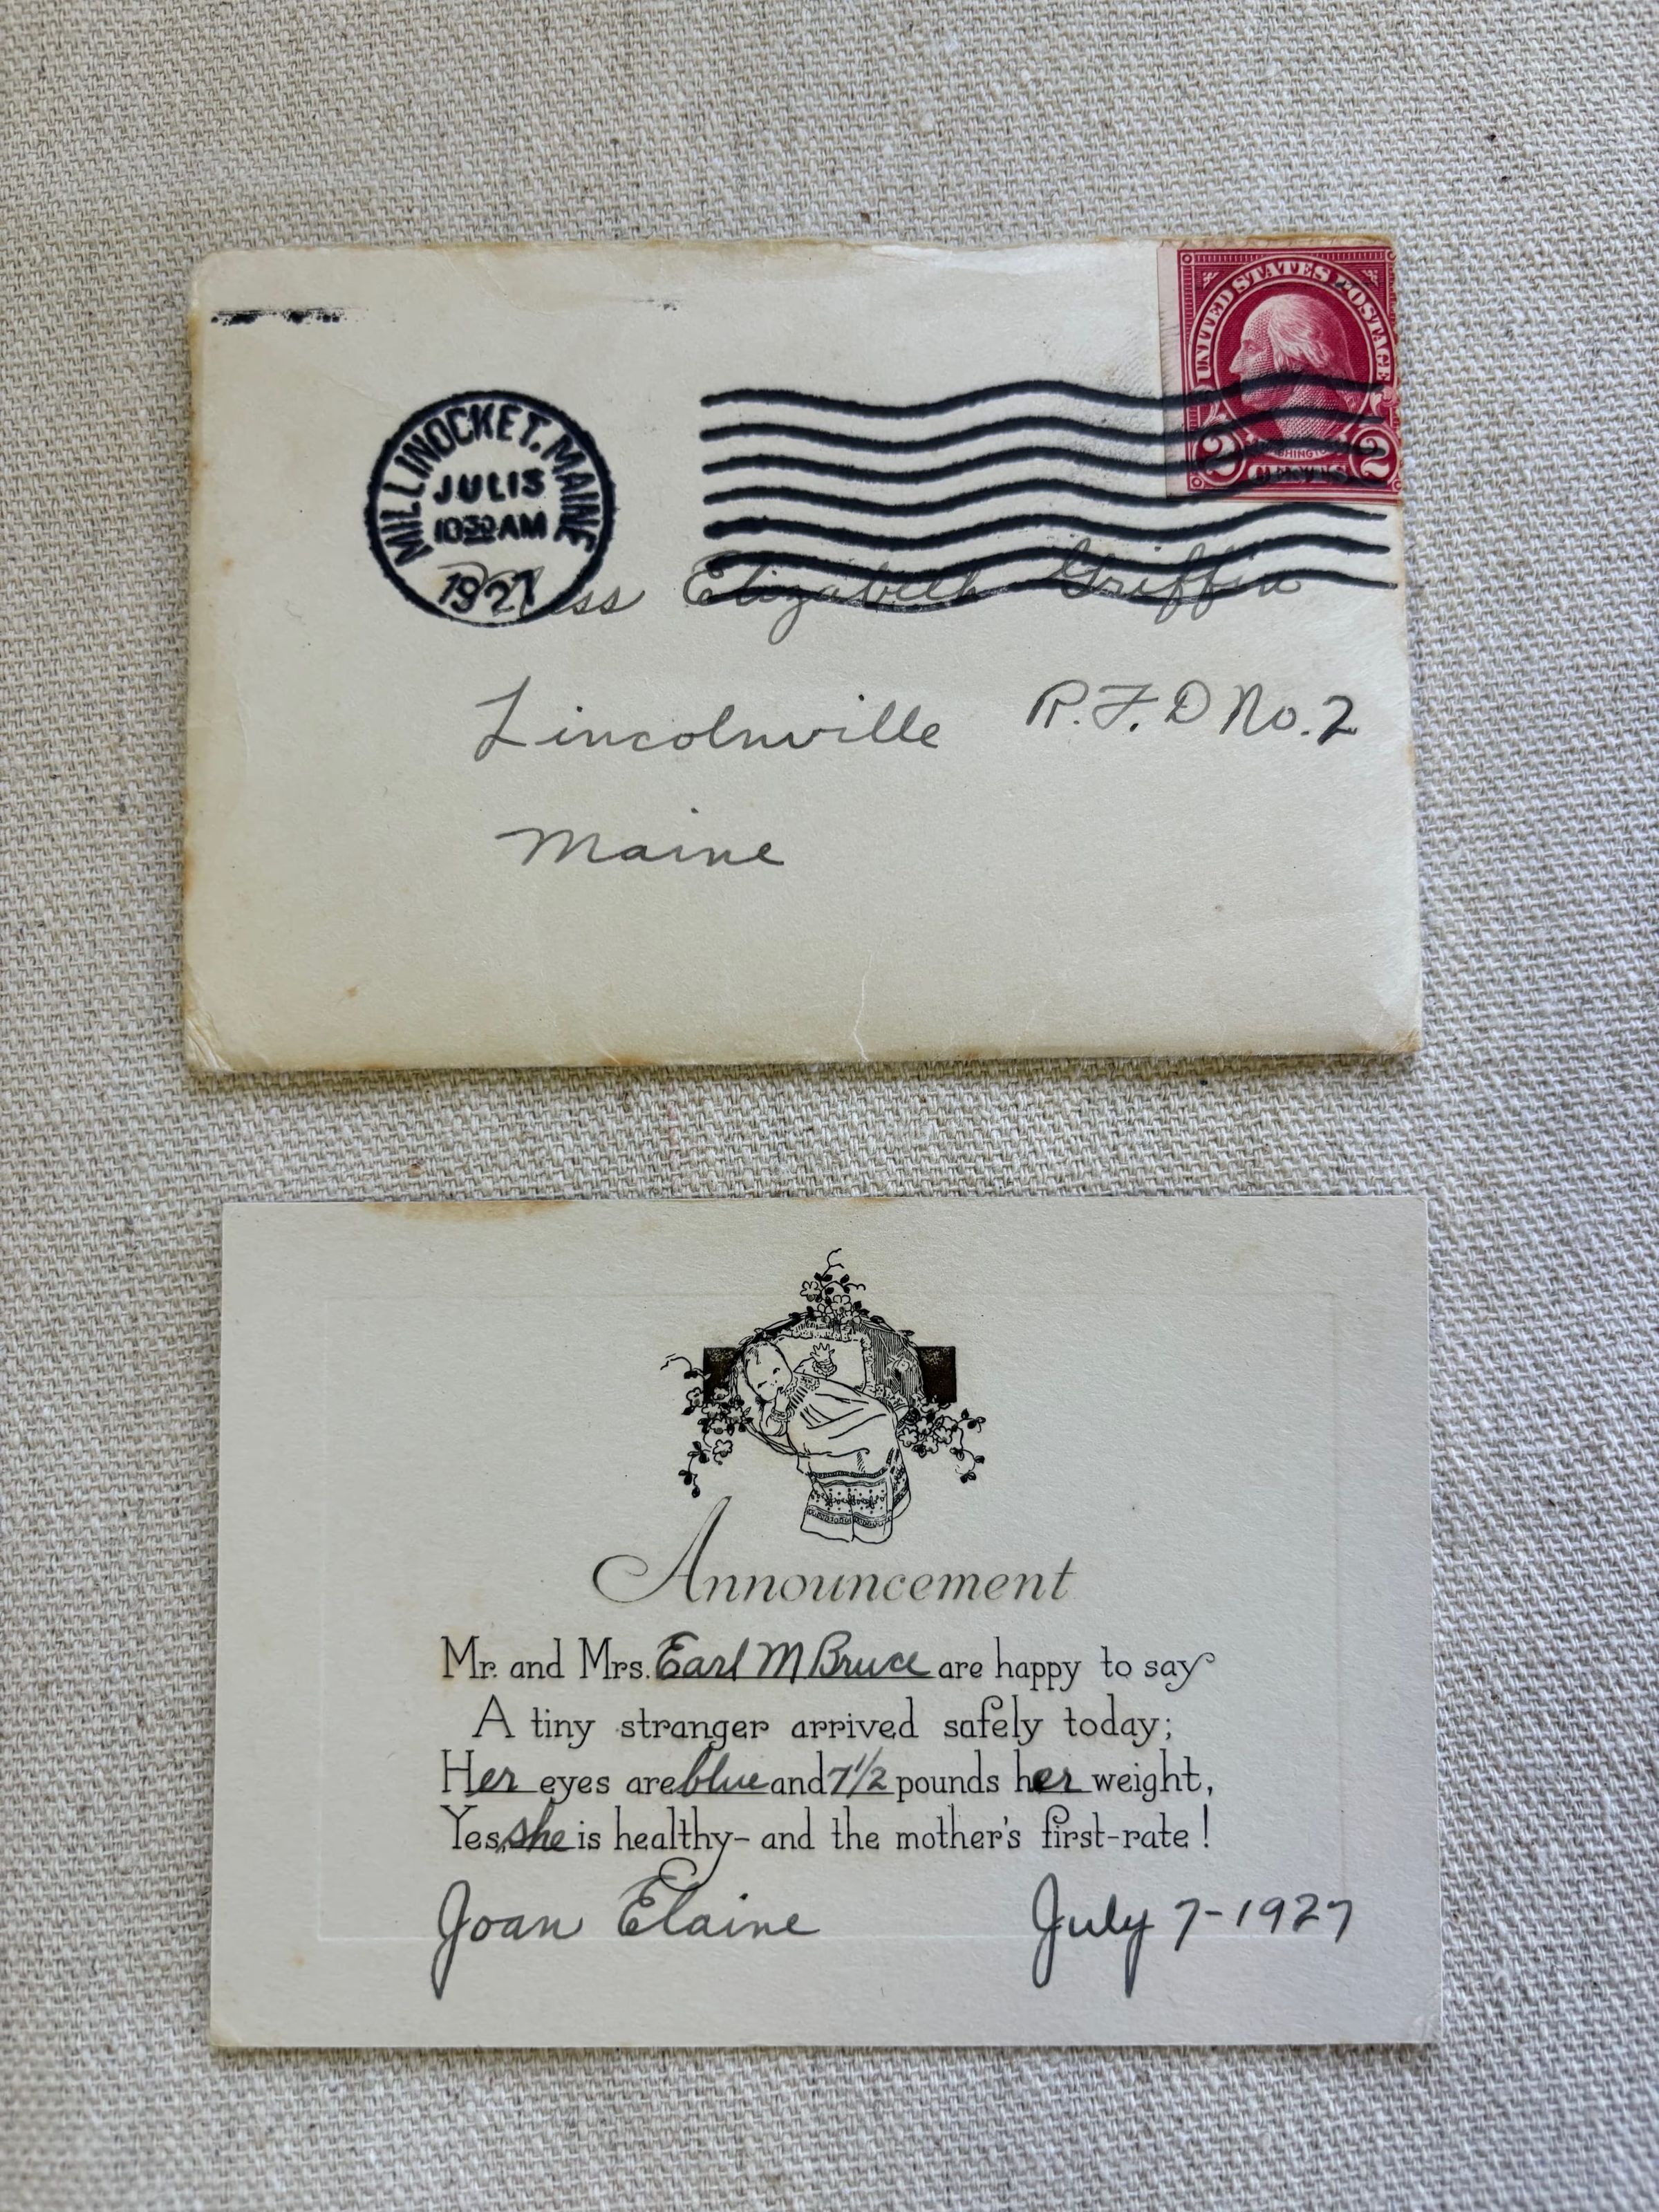 UNITED STATES POSTAGE
WASHINGTON
2 CENTS 2
MILLINOCKET, MAINE
JUL 13
10 30 AM
1927
Miss Elizabeth Griffin
Lincolnville R.F.D No. 2
Maine
Announcement
Mr. and Mrs. Earl M Bruce are happy to say
A tiny stranger arrived safely today;
Her eyes are blue and 7 1/2 pounds her weight,
Yes, she is healthy- and the mother's first-rate!
Joan Elaine July 7-1927